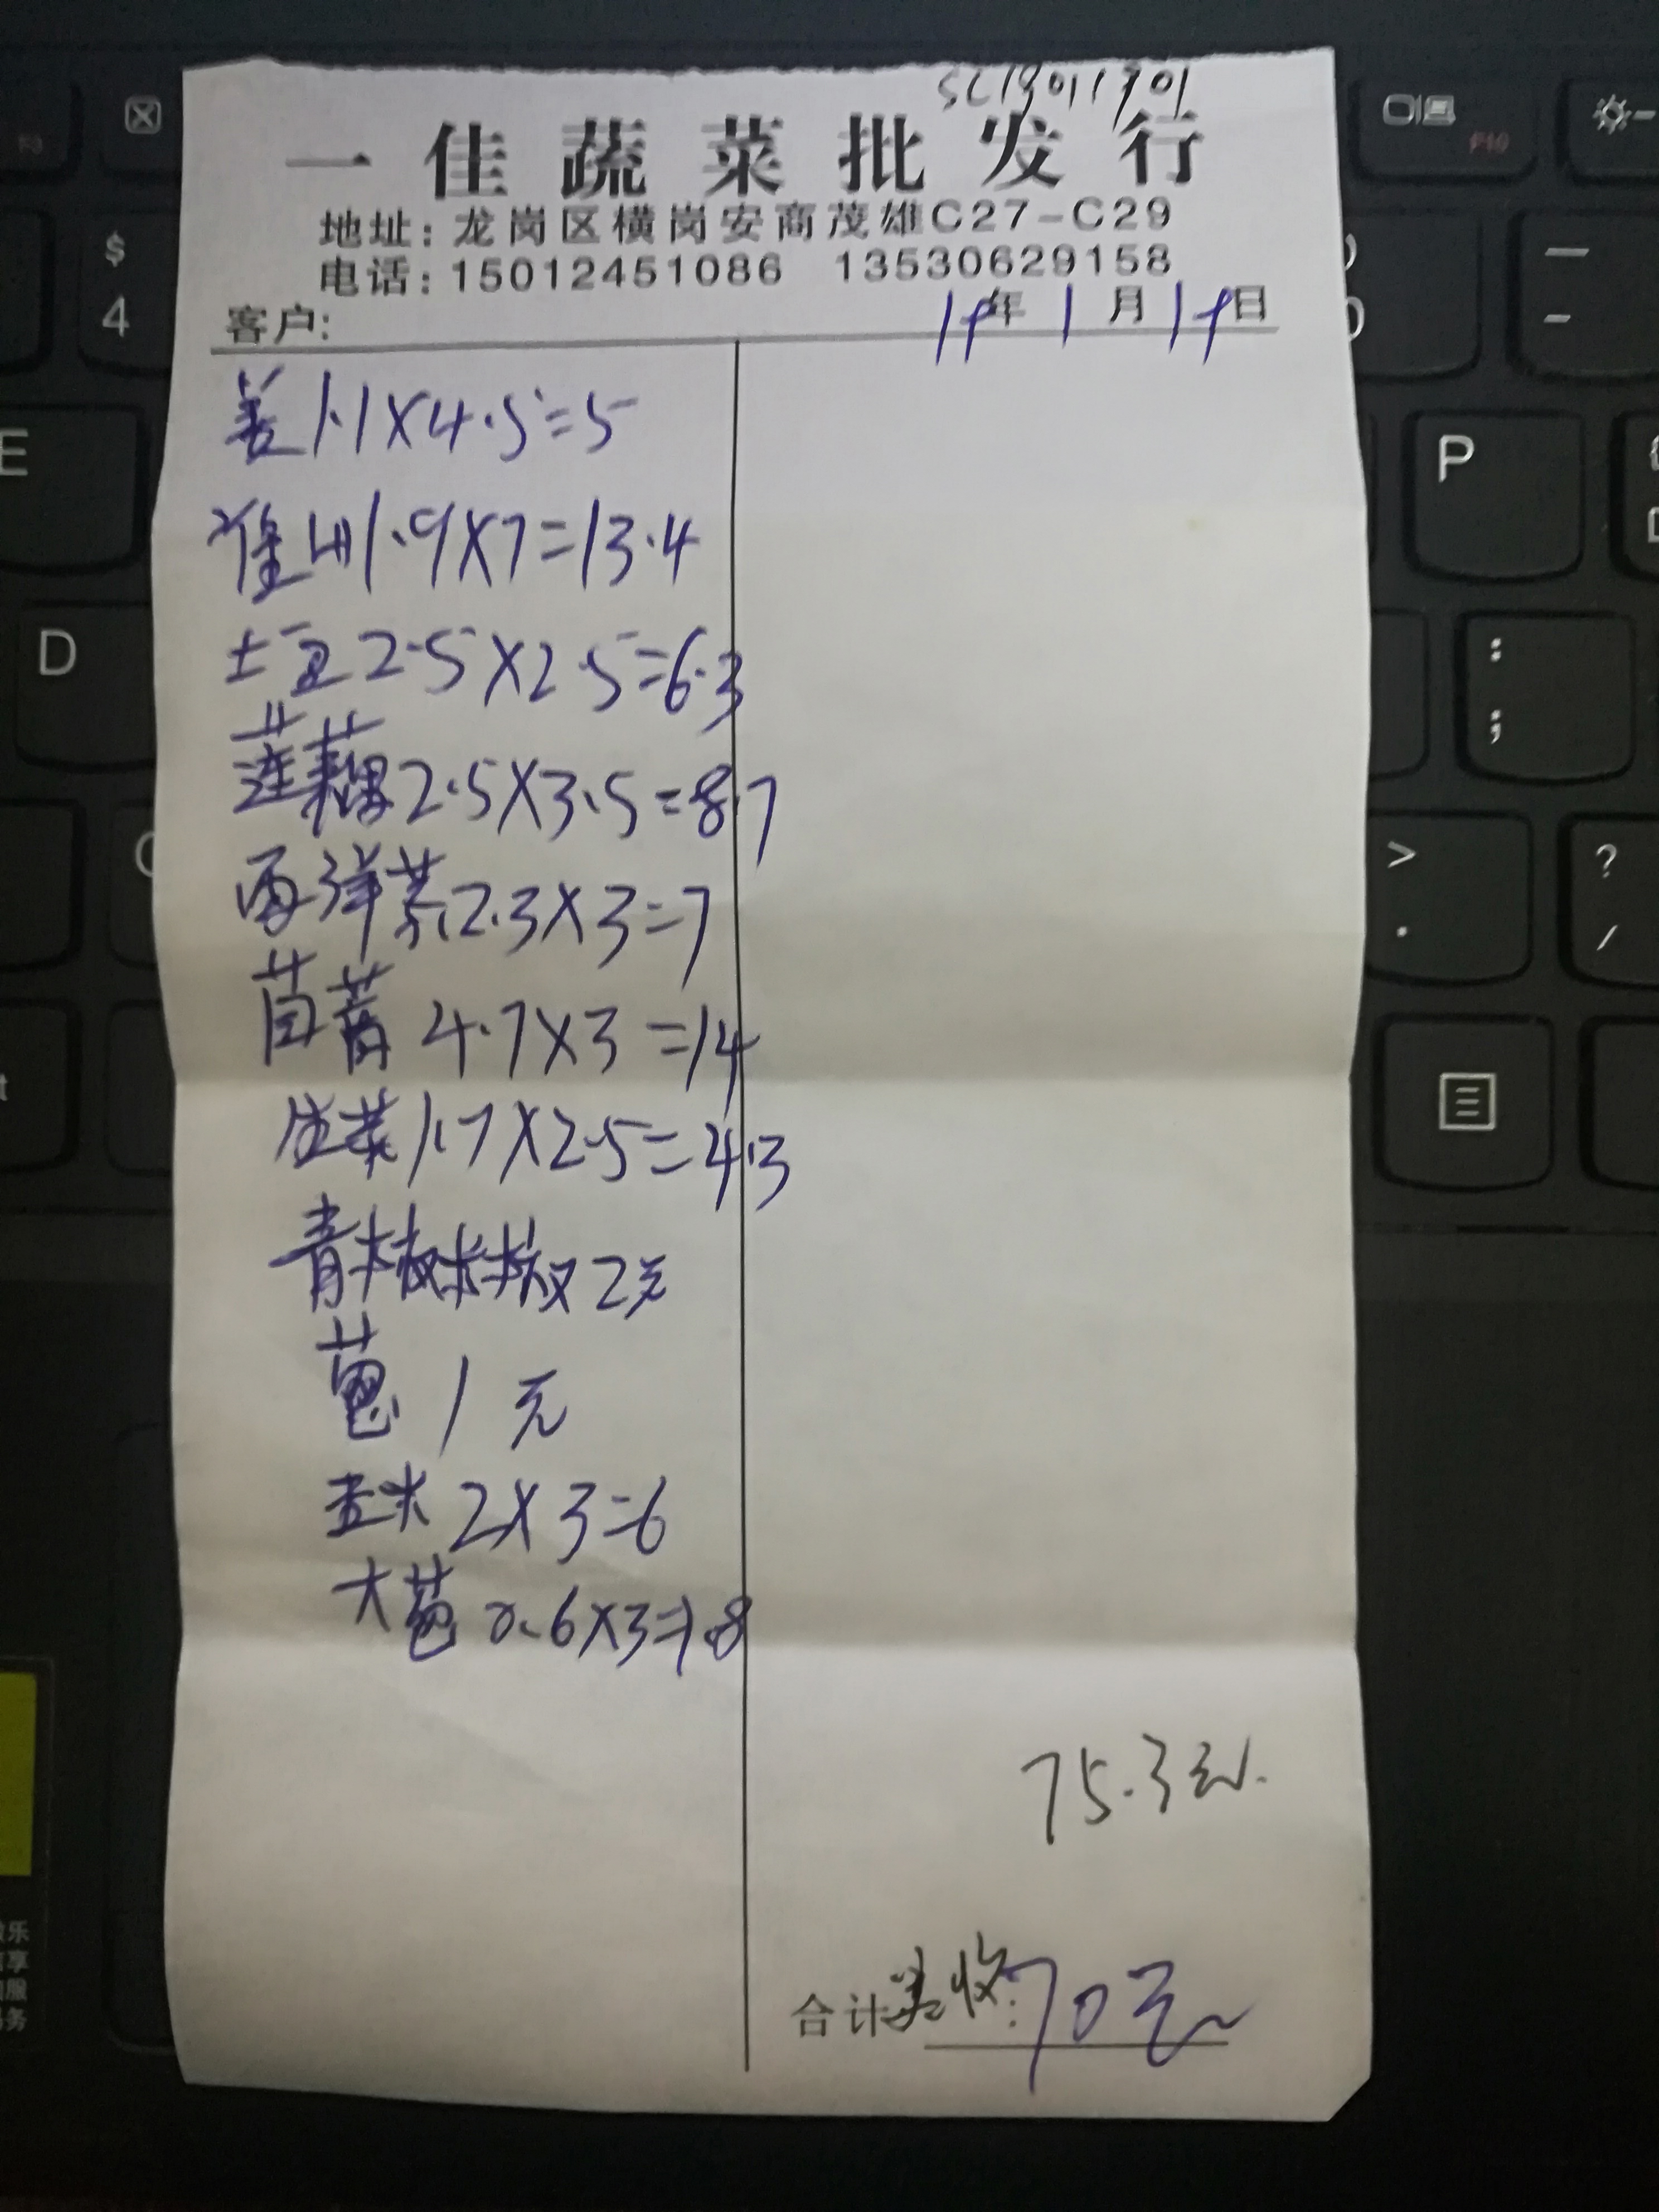 SC19011901
一佳蔬菜批发行
地址：龙岗区横岗安商茂雄C27-C29
电话：15012451086 13530629158
客户： 19年1月19日
姜 1.1X4.5=5
淮山 1.9X7=13.4
土豆 2.5X2.5=6.3
莲藕 2.5X3.5=8.7
西洋菜 2.3X3=7
茼蒿 4.7X3=14
生菜 1.7X2.5=4.3
青椒 2元
葱 1元
玉米 2X3=6
大葱 0.6X3=1.8
75.3元.
合计实收:70元
$
4
F10
E
P
D
:
;
>
.
?
/